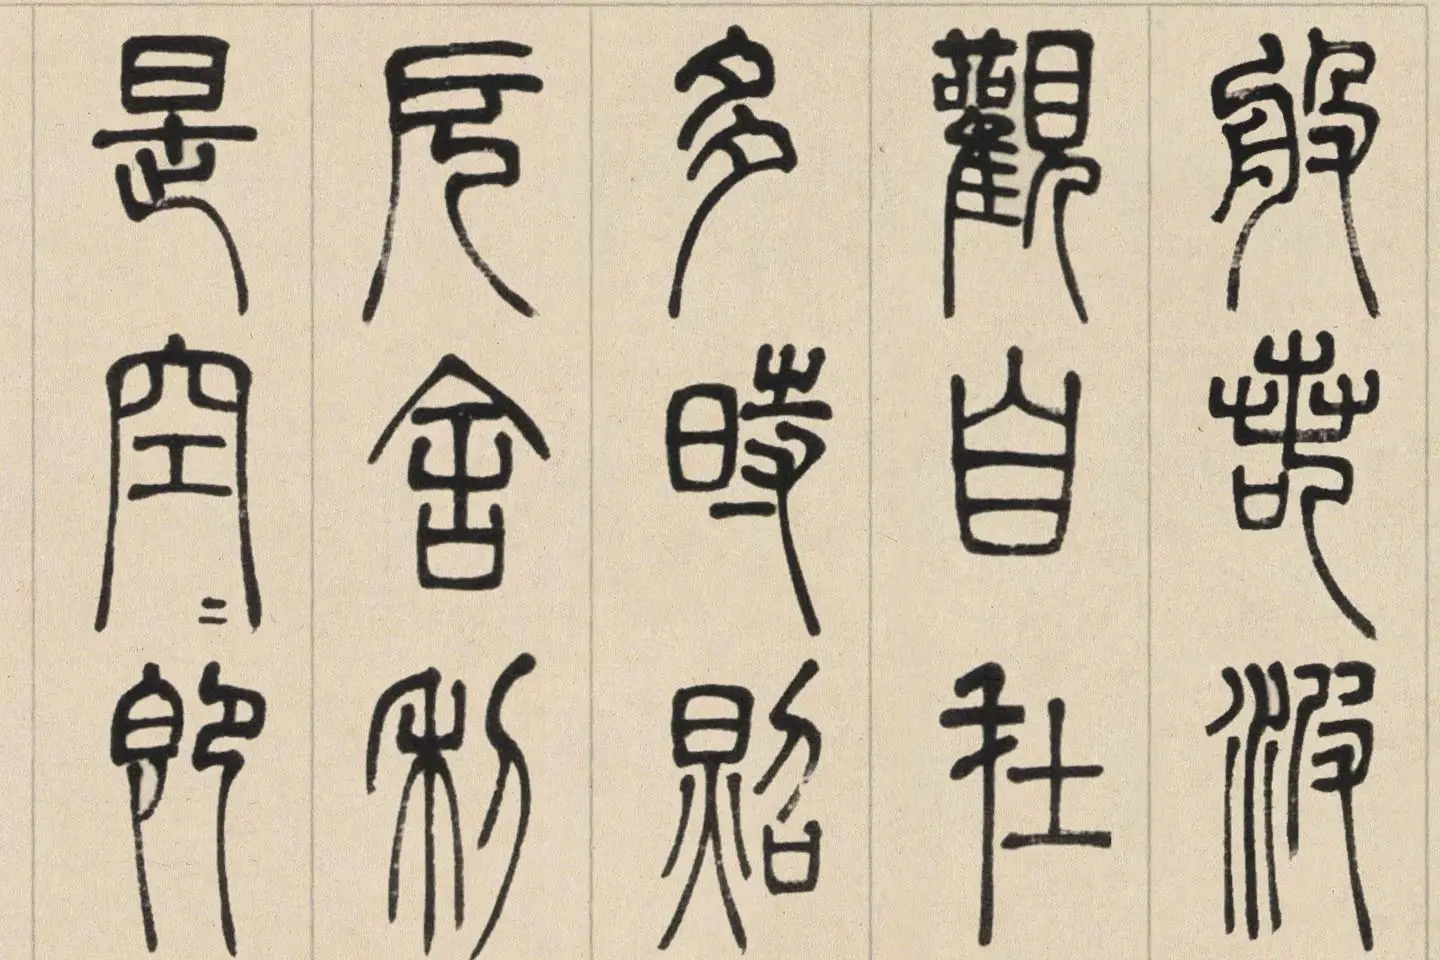 般若波
觀自在
多時照
厄舍利
是空〻即